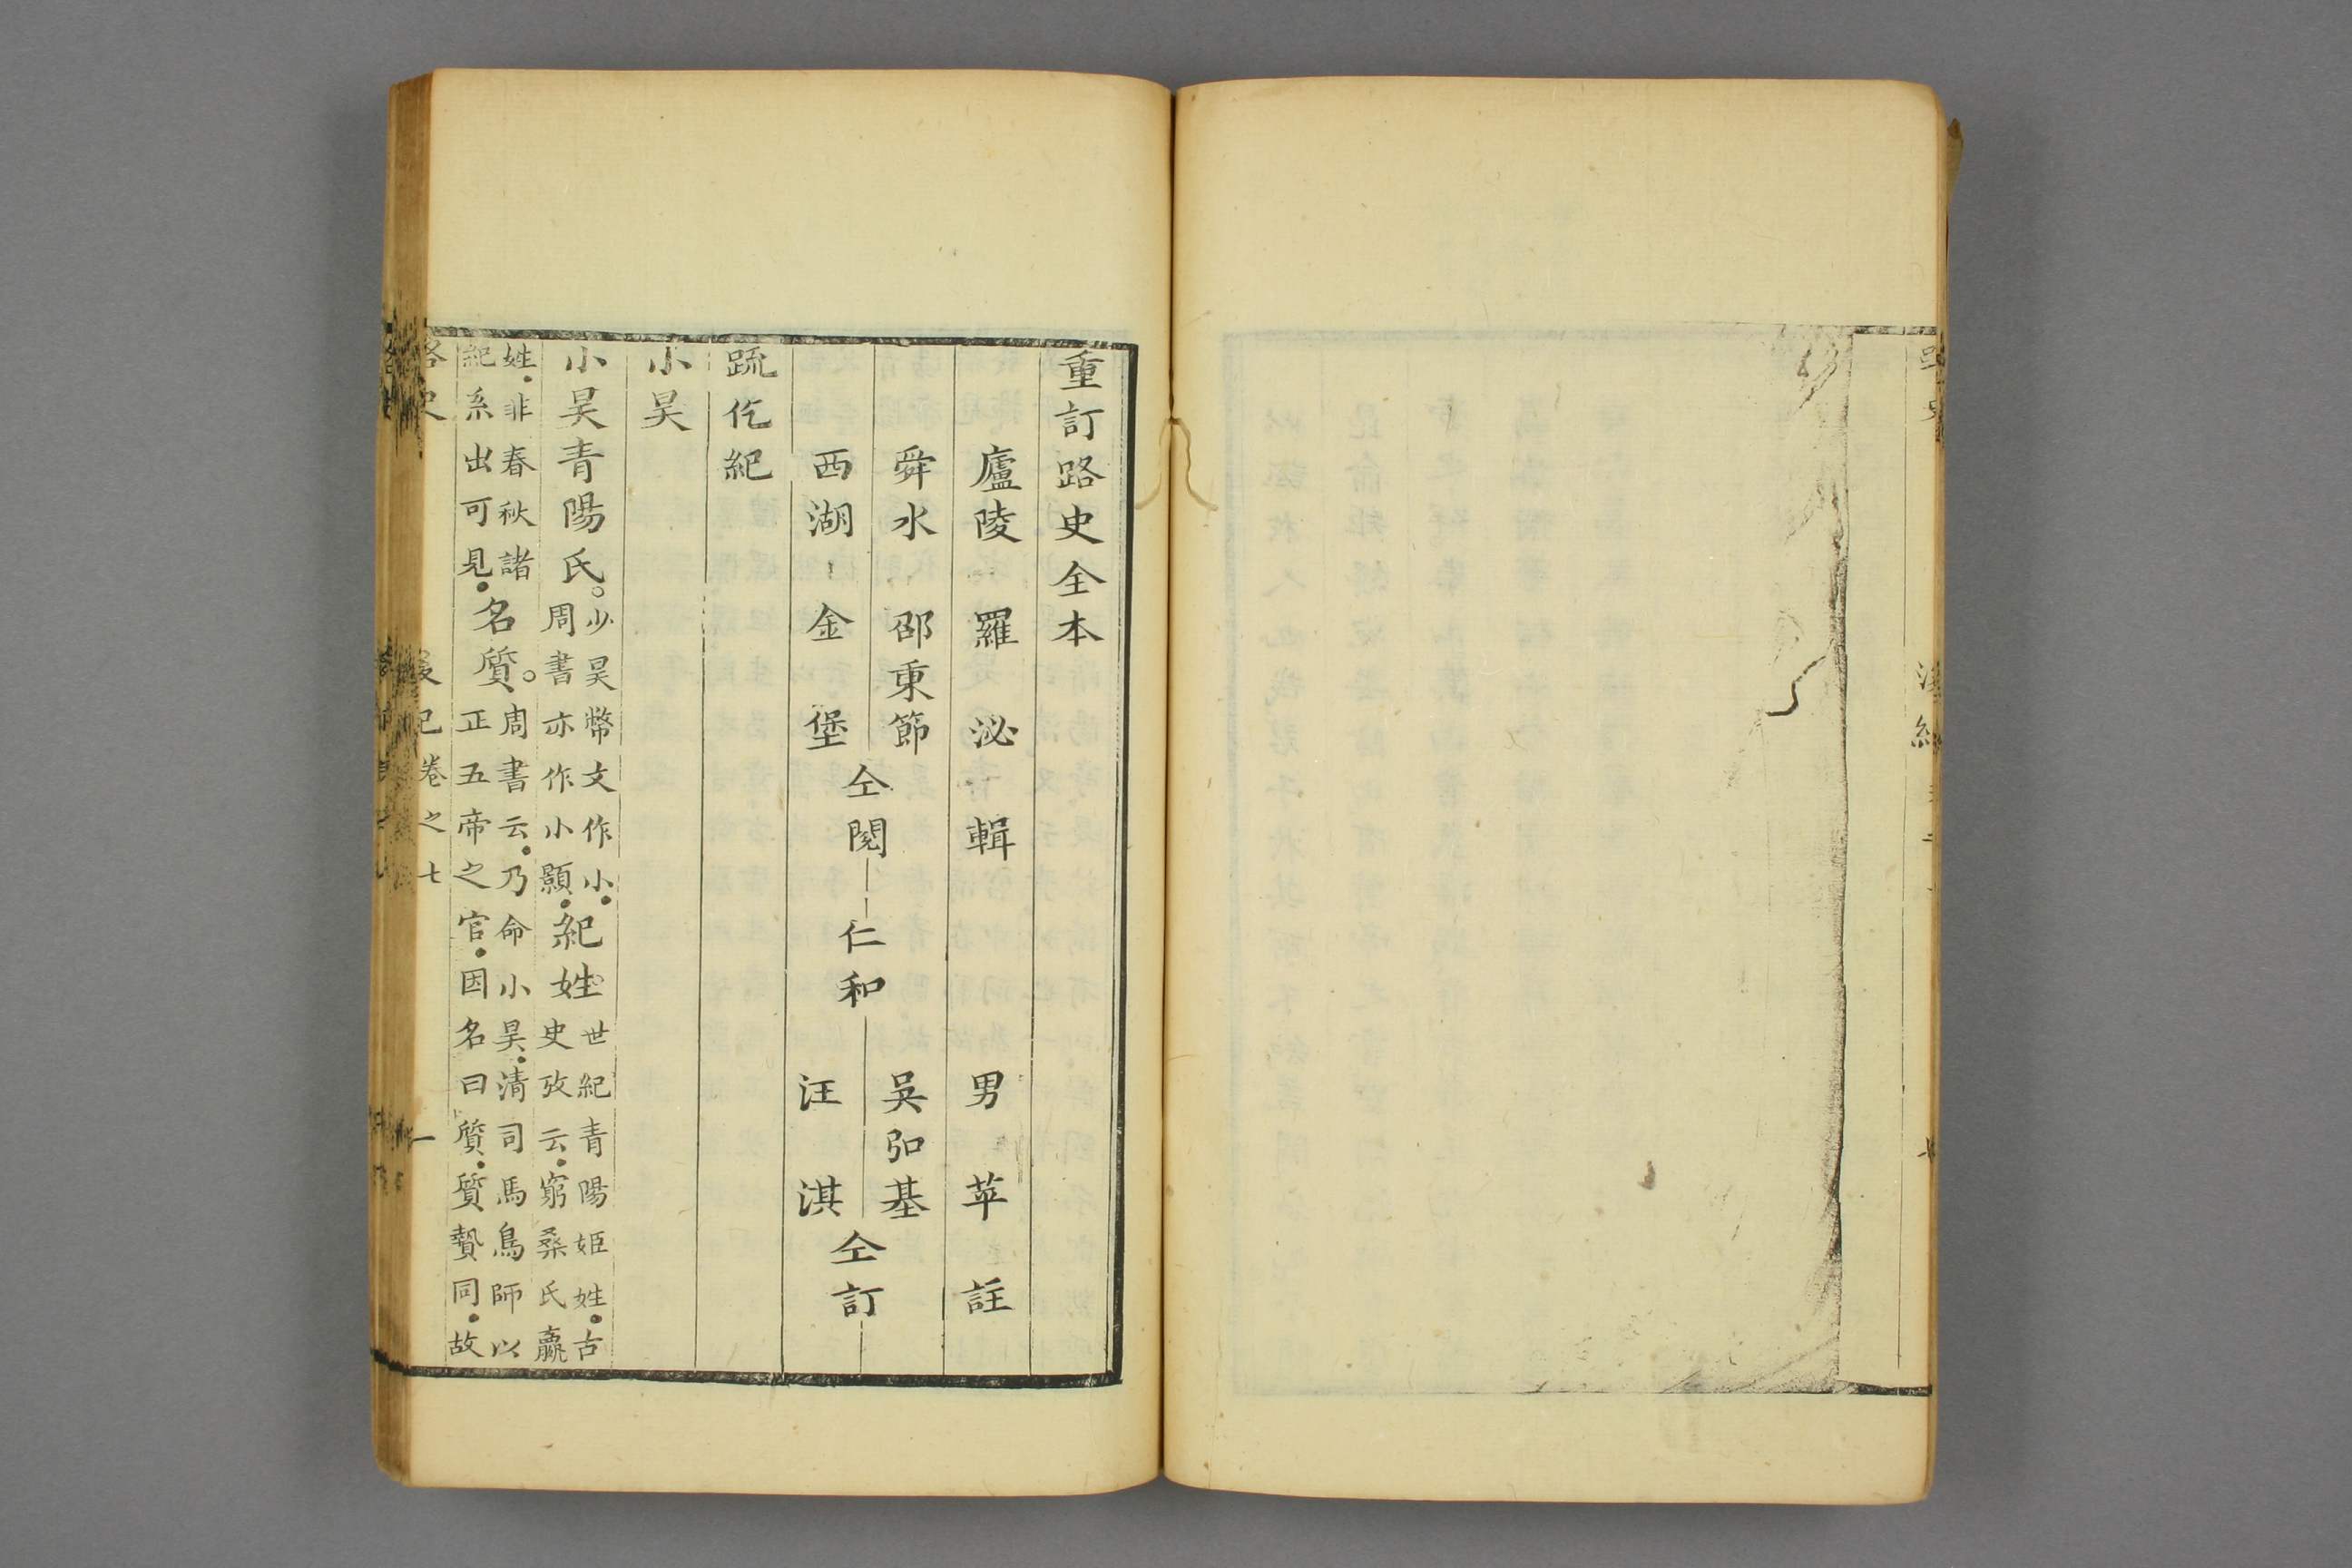 重訂路史全本
廬陵 羅泌輯 男苹註
舜水 邵秉節
西湖 金堡
仝閱
仁和
吳弘基
汪淇
仝訂
疏仡紀
小昊
小昊青陽氏。少昊幣文作小。周書亦作小顥。紀姓世紀青陽姬姓。古史攷云。窮桑氏嬴
姓。非春秋諸紀系出可見。名質。周書云。乃命小昊。清司馬鳥師以正五帝之官。因名曰質。質贄同。故
路史 後紀卷之七 一